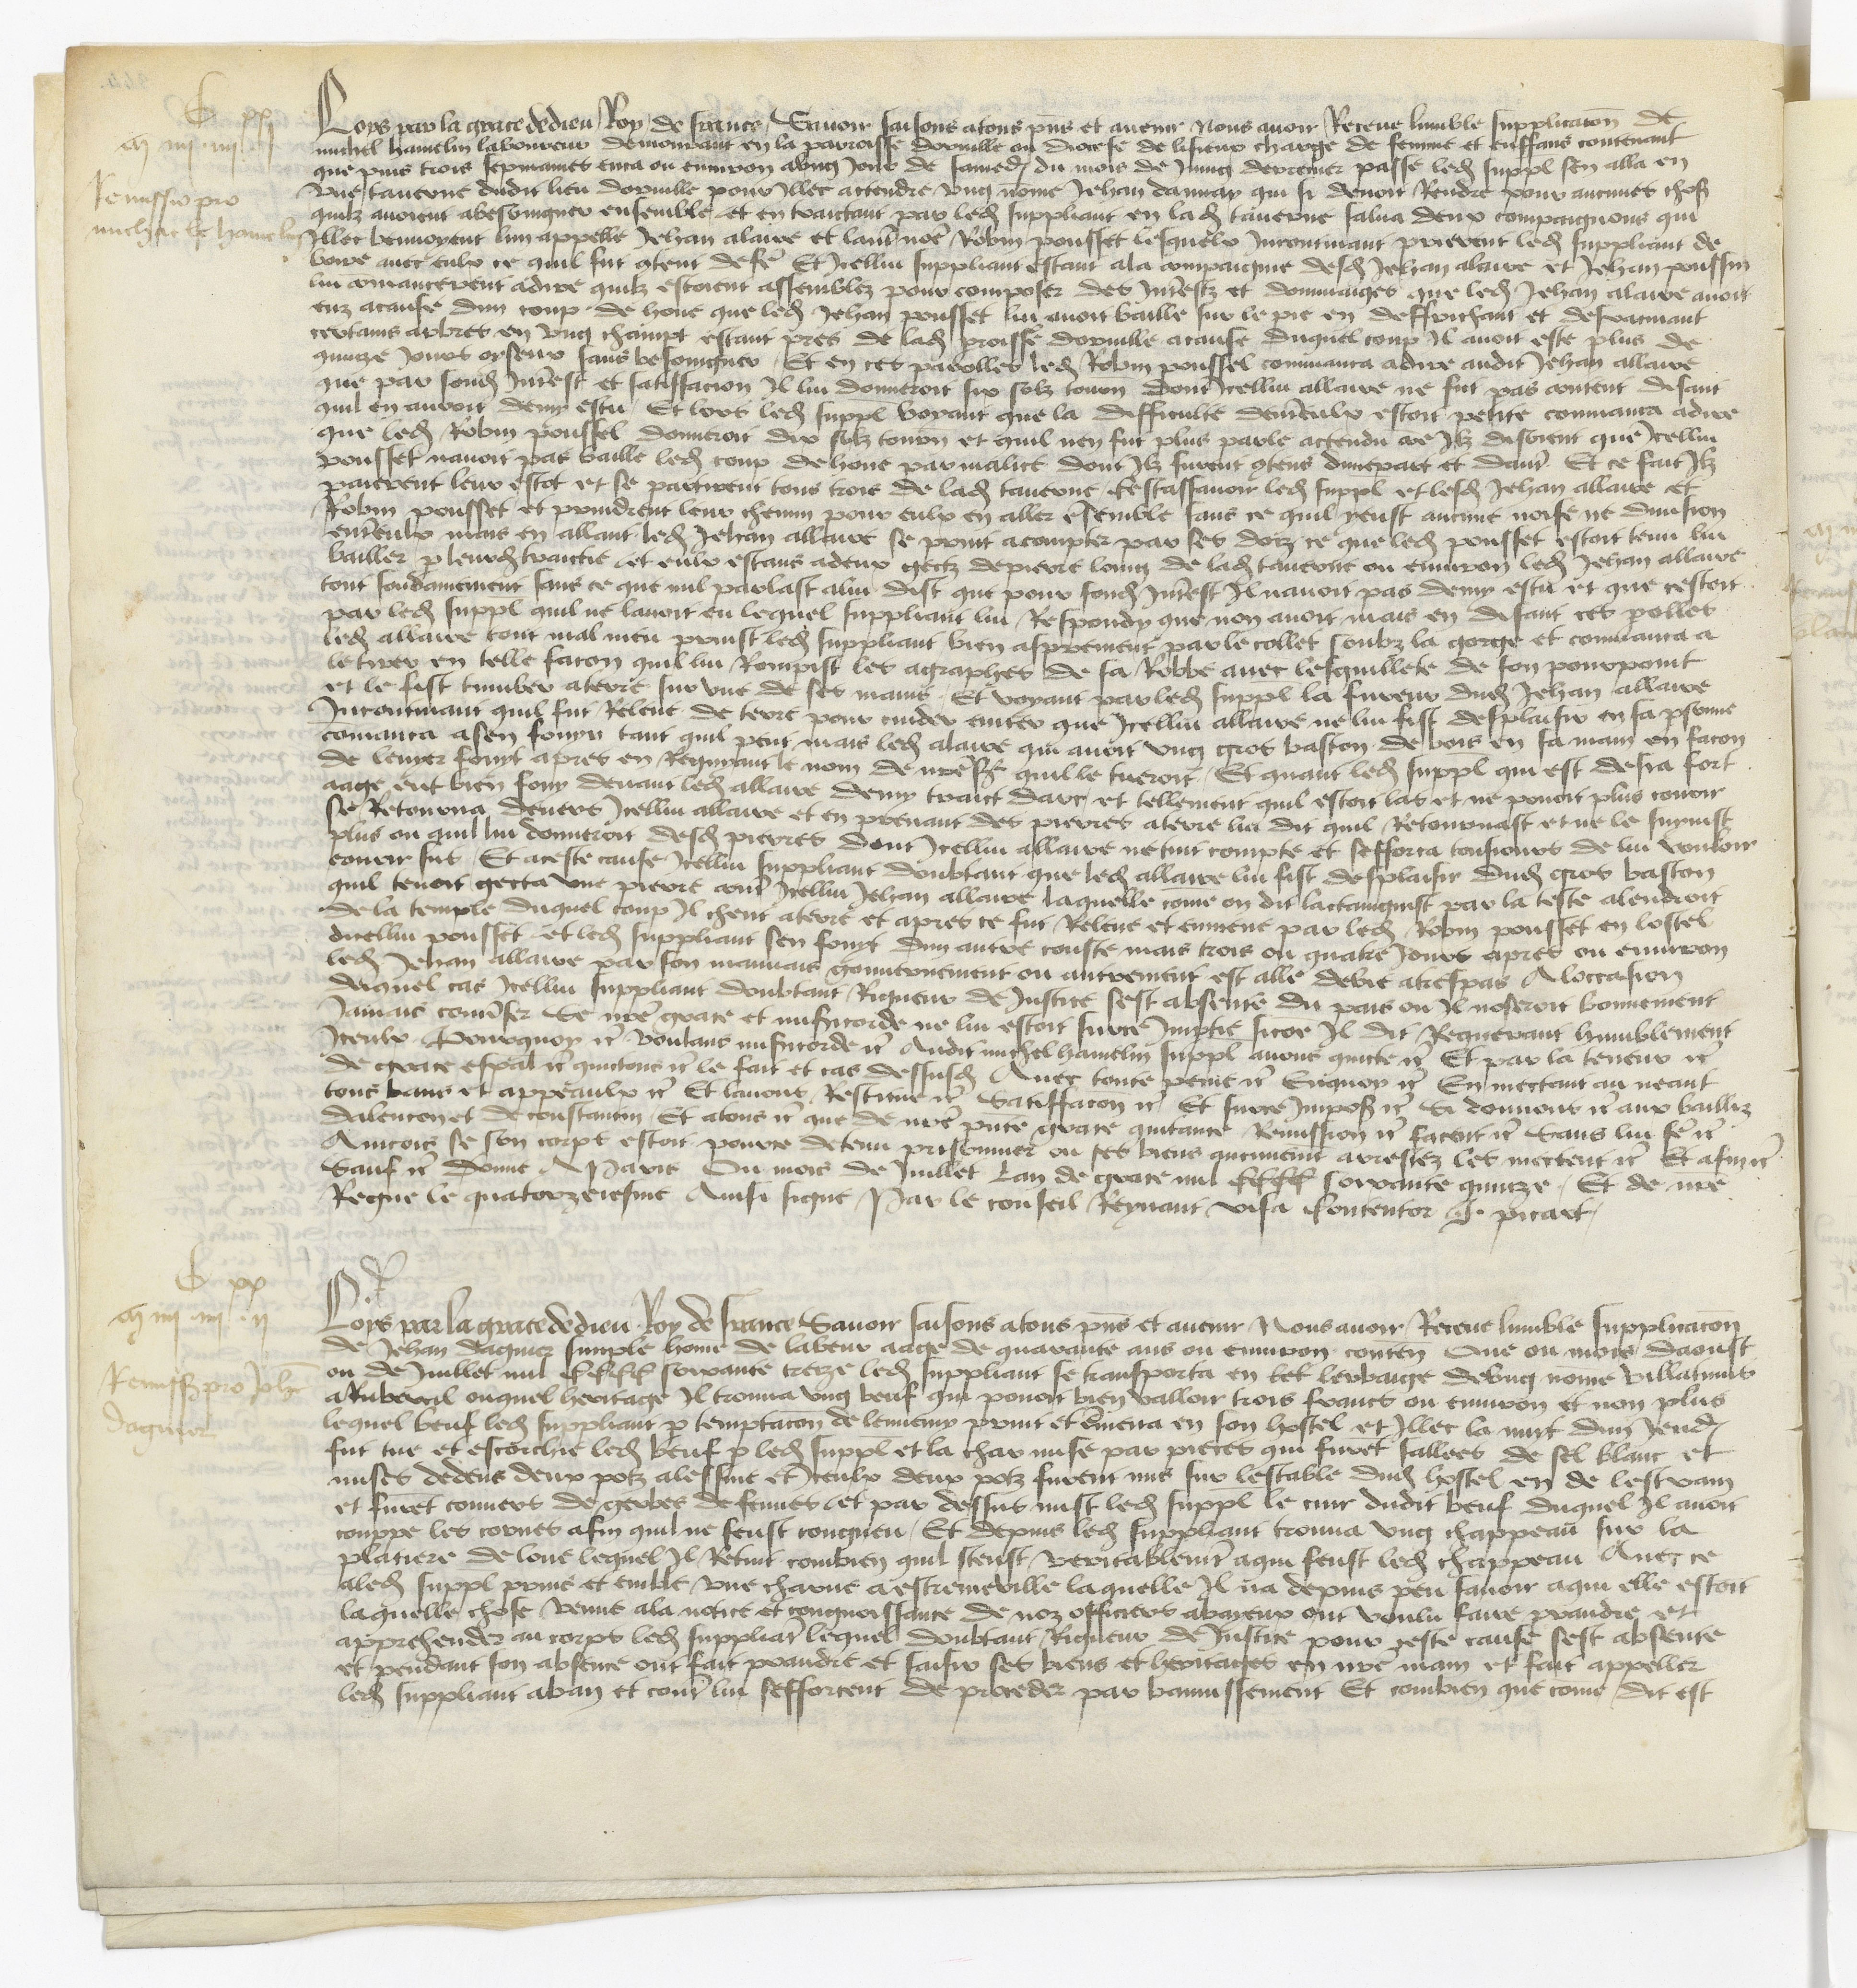 Remissio pro
michaele hamelin
Loys par la grace de dieu Roy de france Savoir faisons a tous pns et avenir Nous avoir Receue lumble supplicacon de
michel hamelin laboureur demourant en la parroisse dorville ou diocese de lisieux charge de femme et enffans contenant
que puis trois sepmaines enca ou environ a ung jour de samedi du mois de Juing derrenier passe led suppl sen alla en
une taverne dudit lieu dorville pour illec actendre ung nome Jehan dannay qui si devoit Rendre pour aucunes choses
quilz avoient abesoingner ensemble et en traictant par led suppliant en lad taverne salua deux compaignons qui
Illec bevvoyent lun appelle Jehan alaire et lautre nome Robin pousset lesquelz Incontinant prierent led suppliant de
boire avec eulx ce quil fut content de fe Et Icellui suppliant estant a la compaignie desd Jehan alaire et Jehan poussin
lui comancerent a dire quilz estoient assemblez pour composer des Interestz et dommaiges que led Jehan alaire avoit
euz a cause dun coup de houe que led Jehan pousset lui avoit baille sur le pie en deffrichant et desracinant
certains arbres en ung champt estant pres de lad proisse dorville a cause duquel coup Il avoit este plus de
quinze jours oyseux sans besoingner Et en ces parolles led Robin poussel commanca a dire audit Jehan allaire
que par sond Interest et satisfacion Il lui donneroit six solz tourn dont Icellui allaire ne fut pas content disant
quil en auroit demy escu Et lors led suppl voyant que la difficulte dentreulx estoit petite commanca a dire
que led Robin poussel donneroit dix solz tourn et quil nen fut plus parle actendu ce Ilz disoient que Icellui
pousset navoit pas baille led coup de houe par malice dont Ilz furent contens dune part et dautre Et ce fait Ilz
paierent leur escot et se partirent tous trois de lad taverne Cestassavoir led suppl et lesd Jehan allaire et
Robin pousset et prindrent leur chemin pour eulx en aller ensemble sans ce quil y eust aucune noise ne division
entreulx mais en allant led Jehan allaire se print a compter par ses doiz ce que led pousset estoit tenu lui
bailler p leurd traictie et eulx estans a deux gectz de pierre loing de lad taverne ou environ led Jehan allaire
tout soudainement sans ce que nul parlast a lui dist que pour sond Interest Il navoit pas demy escu et que cestoit
par led suppl quil ne lavoit eu lequel suppliant lui Respondy que non avoit mais en disant ces polles
led allaire tout mal meu prinst led suppliant bien asprement par le collet soubz la gorge et commanca a
le tirer en telle facon quil lui Rompist les agraphes de sa Robbe avec lesguillete de son pourpoint
et le fist tumber a terre sur une de ses mains Et voyant par led suppl la fureur dud Jehan allaire
Incontinant quil fut Releve de terre pour cuider eviter que Icellui allaire ne lui fist desplaisir en sa psonne
comanca a sen fouyr tant quil peut mais led alaire qui avoit ung gros baston de bois en sa main en facon
de levier fouyt apres en Regnyant le nom de nre sr quil le tueroit Et quant led suppl qui est desia fort
aage eut bien fouy devant led allaire demy traict darc et tellement quil estoit las et ne povoit plus courir
se Retourna devers Icellui allaire et en prenant des pierres a terre lui dit quil Retournast et ne le suyvist
plus ou quil lui donneroit desd pierres dont Icellui allaire ne tint compte et sefforca tousiours de lui vouloir
courir sus Et a ceste cause Icellui suppliant doubtant que led allaire lui fist desplaisir dud gros baston
quil tenoit gecta une pierre contre Icellui Jehan allaire laquelle come on dit lactaingnist par la teste a lendroit
de la temple duquel coup Il cheut a terre et apres ce fut Releve et emmene par led Robin pousset en lostel
dicellui pousset et led suppliant sen fouyt dun autre couste mais trois ou quatre jours apres ou environ
led Jehan allaire par son mauvais gouvernement ou autrement est alle de vie a trespas A loccasion
duquel cas Icellui suppliant doubtant Rigueur de Justice sest absente du pais ou Il noseroit bonnement
Jamais converser se nre grace et misicorde ne lui estoit sur ce Imptie sicoe Il dit Requerant humblement
Iceulx Pourquoy etc voulans misicorde etc Audit michel hamelin suppl avons quicte etc Et par la teneur etc
de grace espal etc quictons etc le fait et cas dessusd Avec toute peine etc Enquoy etc En mectant au neant
tous bans et appeaulx etc Et lavons Restitue etc Satiffacon etc Et sur ce Impos etc Si donnons etc aux bailliz
dalencon et de constantin Et a tous etc que de nre pnte grace quictance Remission etc facent etc Sans lui fe etc
Aincois se son corps estoit pource detenu prisonnier ou ses biens aucunemt arrestez les mectent etc Et afin etc
Sauf etc Donne A Paris Ou mois de Juillet Lan de grace mil cccc soixante quinze Et de nre
Regne le quatorzeiesme Ainsi signe Par le conseil Reynaut visa contentor G. picart
Remiss pro Joh
daguier
Loys par la grace de dieu Roy de france Savoir faisons a tous pns et avenir Nous avoir Receue lumble supplicacon
de Jehan daguier simple home de labeur aage de quarante ans ou environ conten Que ou mois daoust
ou de Juillet mil cccc soixante treize led suppliant se transporta en lerbaige de ung nome villatinus
a Rubercil ouquel heritage Il trouva ung beuf qui povoit bien valloir trois francs ou environ et non plus
lequel beuf led suppliant p temptacon de lennemy print et emena en son hostel et Illec la nuyt dun jeudi
fut tue et escorchie led beuf p led suppl et la char mise par pieces qui furet sallees de sel blanc et
mises dedens deux potz a lessive et Iceulx deux potz furent mis sur lestable dud hostel en de lestrain
et furet couvers de gerbes de feuves et par dessus mist led suppl le cuir dudit beuf duquel Il avoit
couppe les cornes afin quil ne feust congneu Et depuis led suppliant trouva ung chappeau sur la
platiere de love lequel Il Retint combien quil sceust veritablemt a qui feust led chappeau Avec ce
a led suppl prins et emble une charue a estremeville laquelle Il na depuis peu savoir a qui elle estoit
laquelle chose venue a la notice et congnoissance de noz officiers a bayeux ont voulu faire prandre et
apprehender au corps led suppliat lequel doubtant Rigueur de Justice pour ceste cause sest absente
et pendant son absence ont fait prandre et saisir ses biens et heritages en nre main et fait appeller
led suppliant a ban et contre lui sefforcent de proceder par bannissement Et combien que come dit est